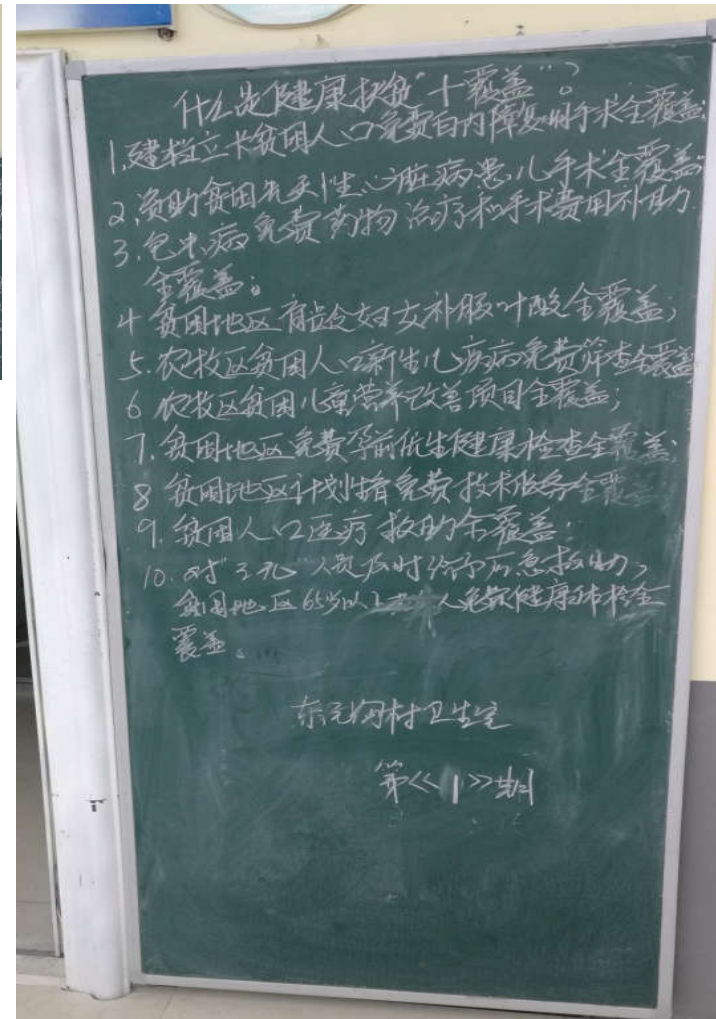 什么是健康扶贫“十覆盖”？
1.建档立卡贫困人口免费白内障复明手术全覆盖;
2.资助贫困先天性心脏病患儿手术全覆盖
3.包虫病免费药物治疗和手术费用补助
全覆盖;
4 贫困地区育龄妇女补服叶酸全覆盖;
5.农牧区贫困人口新生儿疾病免费筛查全覆盖
6 农牧区贫困儿童营养改善项目全覆盖;
7.贫困地区免费孕前优生健康检查全覆盖;
8 贫困地区计划生育免费技术服务全覆盖
9.贫困人口医疗救助全覆盖;
10.对“三无”人员及时给予应急救助,
贫困地区65岁以上 人免费健康体检全
覆盖。
东元 村卫生室
第<<1>>期